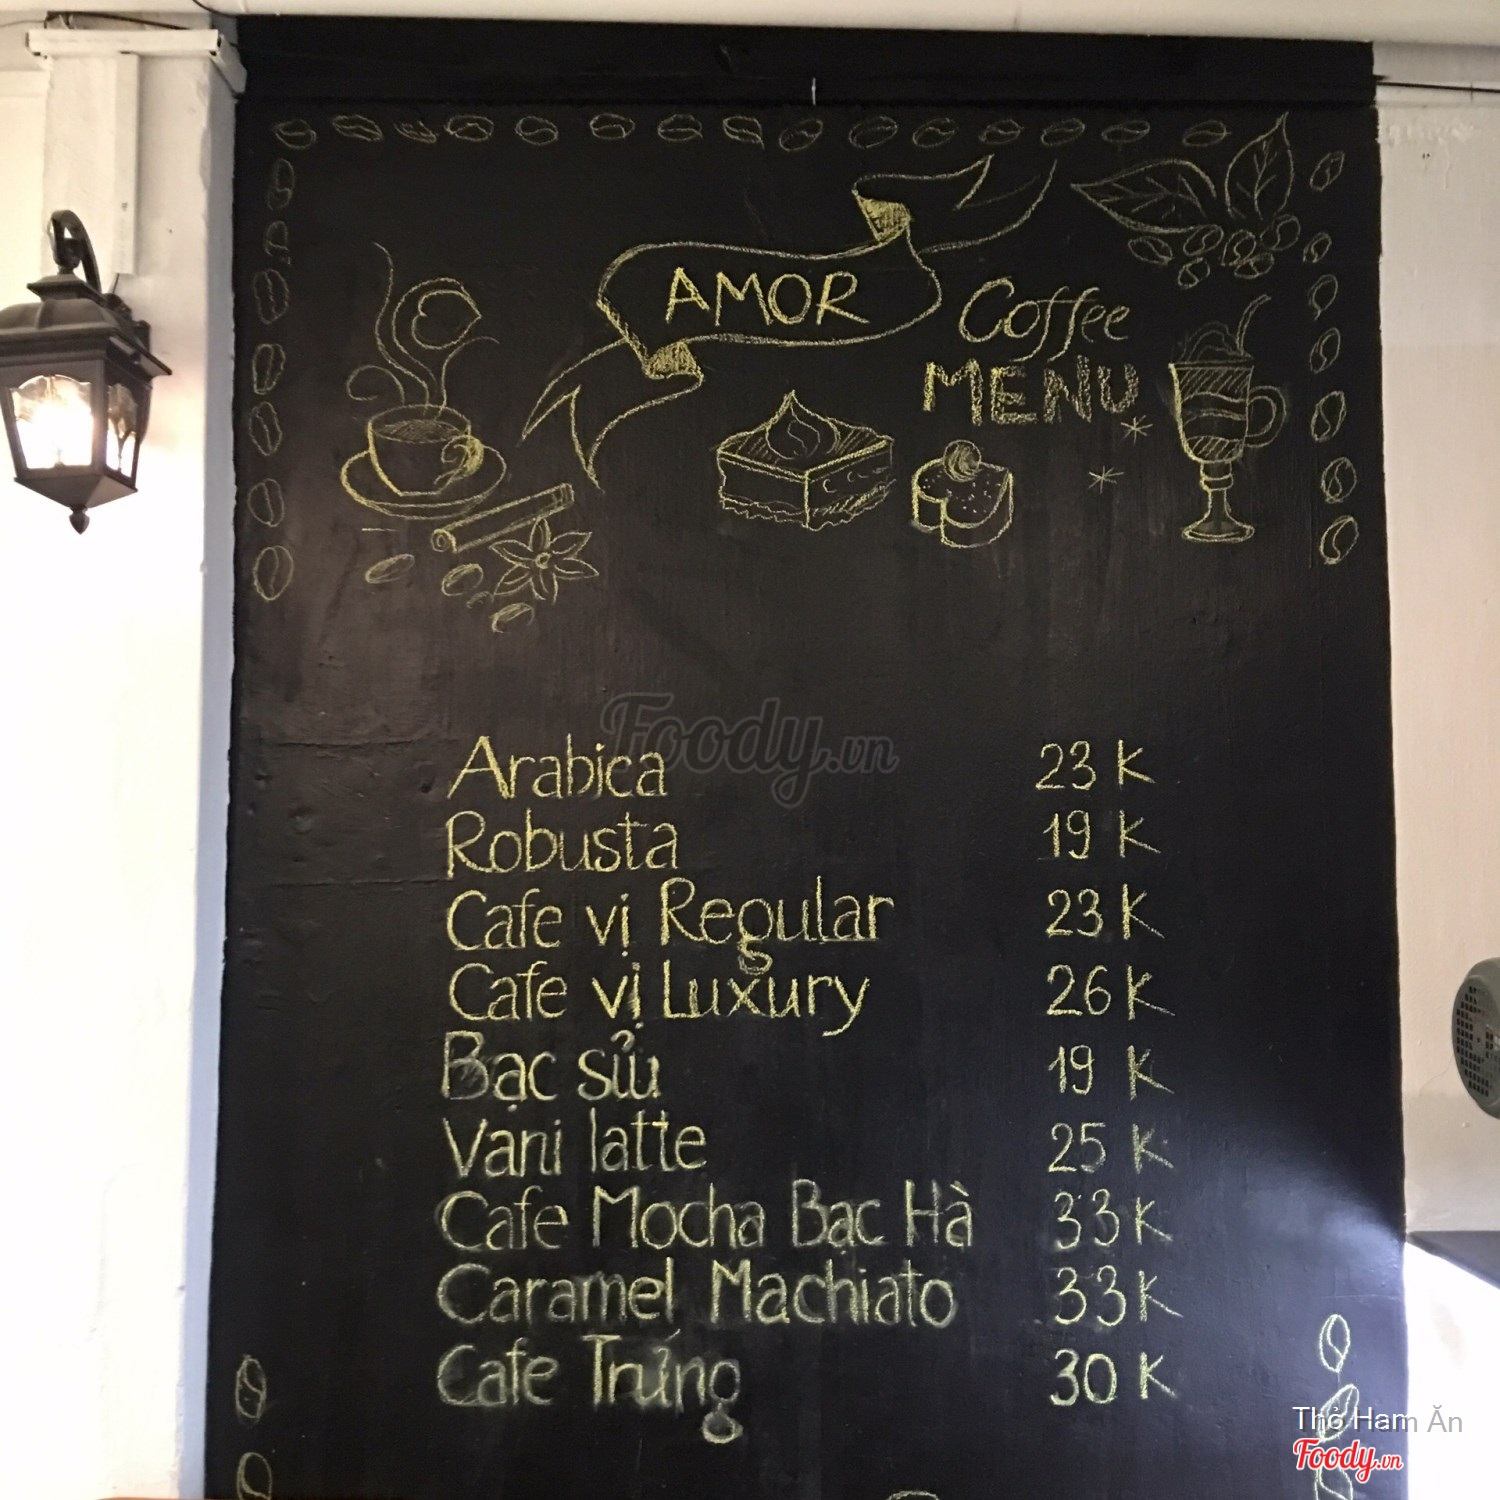 AMOR
Coffee
MENU
Foody.vn
Arabica 23 K
Robusta 19 K
Cafe vị Regular 23 K
Cafe vị Luxury 26 K
Bạc sỉu 19 K
Vani latte 25 K
Cafe Mocha Bạc Hà 33 K
Caramel Machiato 33 K
Cafe Trứng 30 K
Thỏ Ham Ăn
Foody.vn